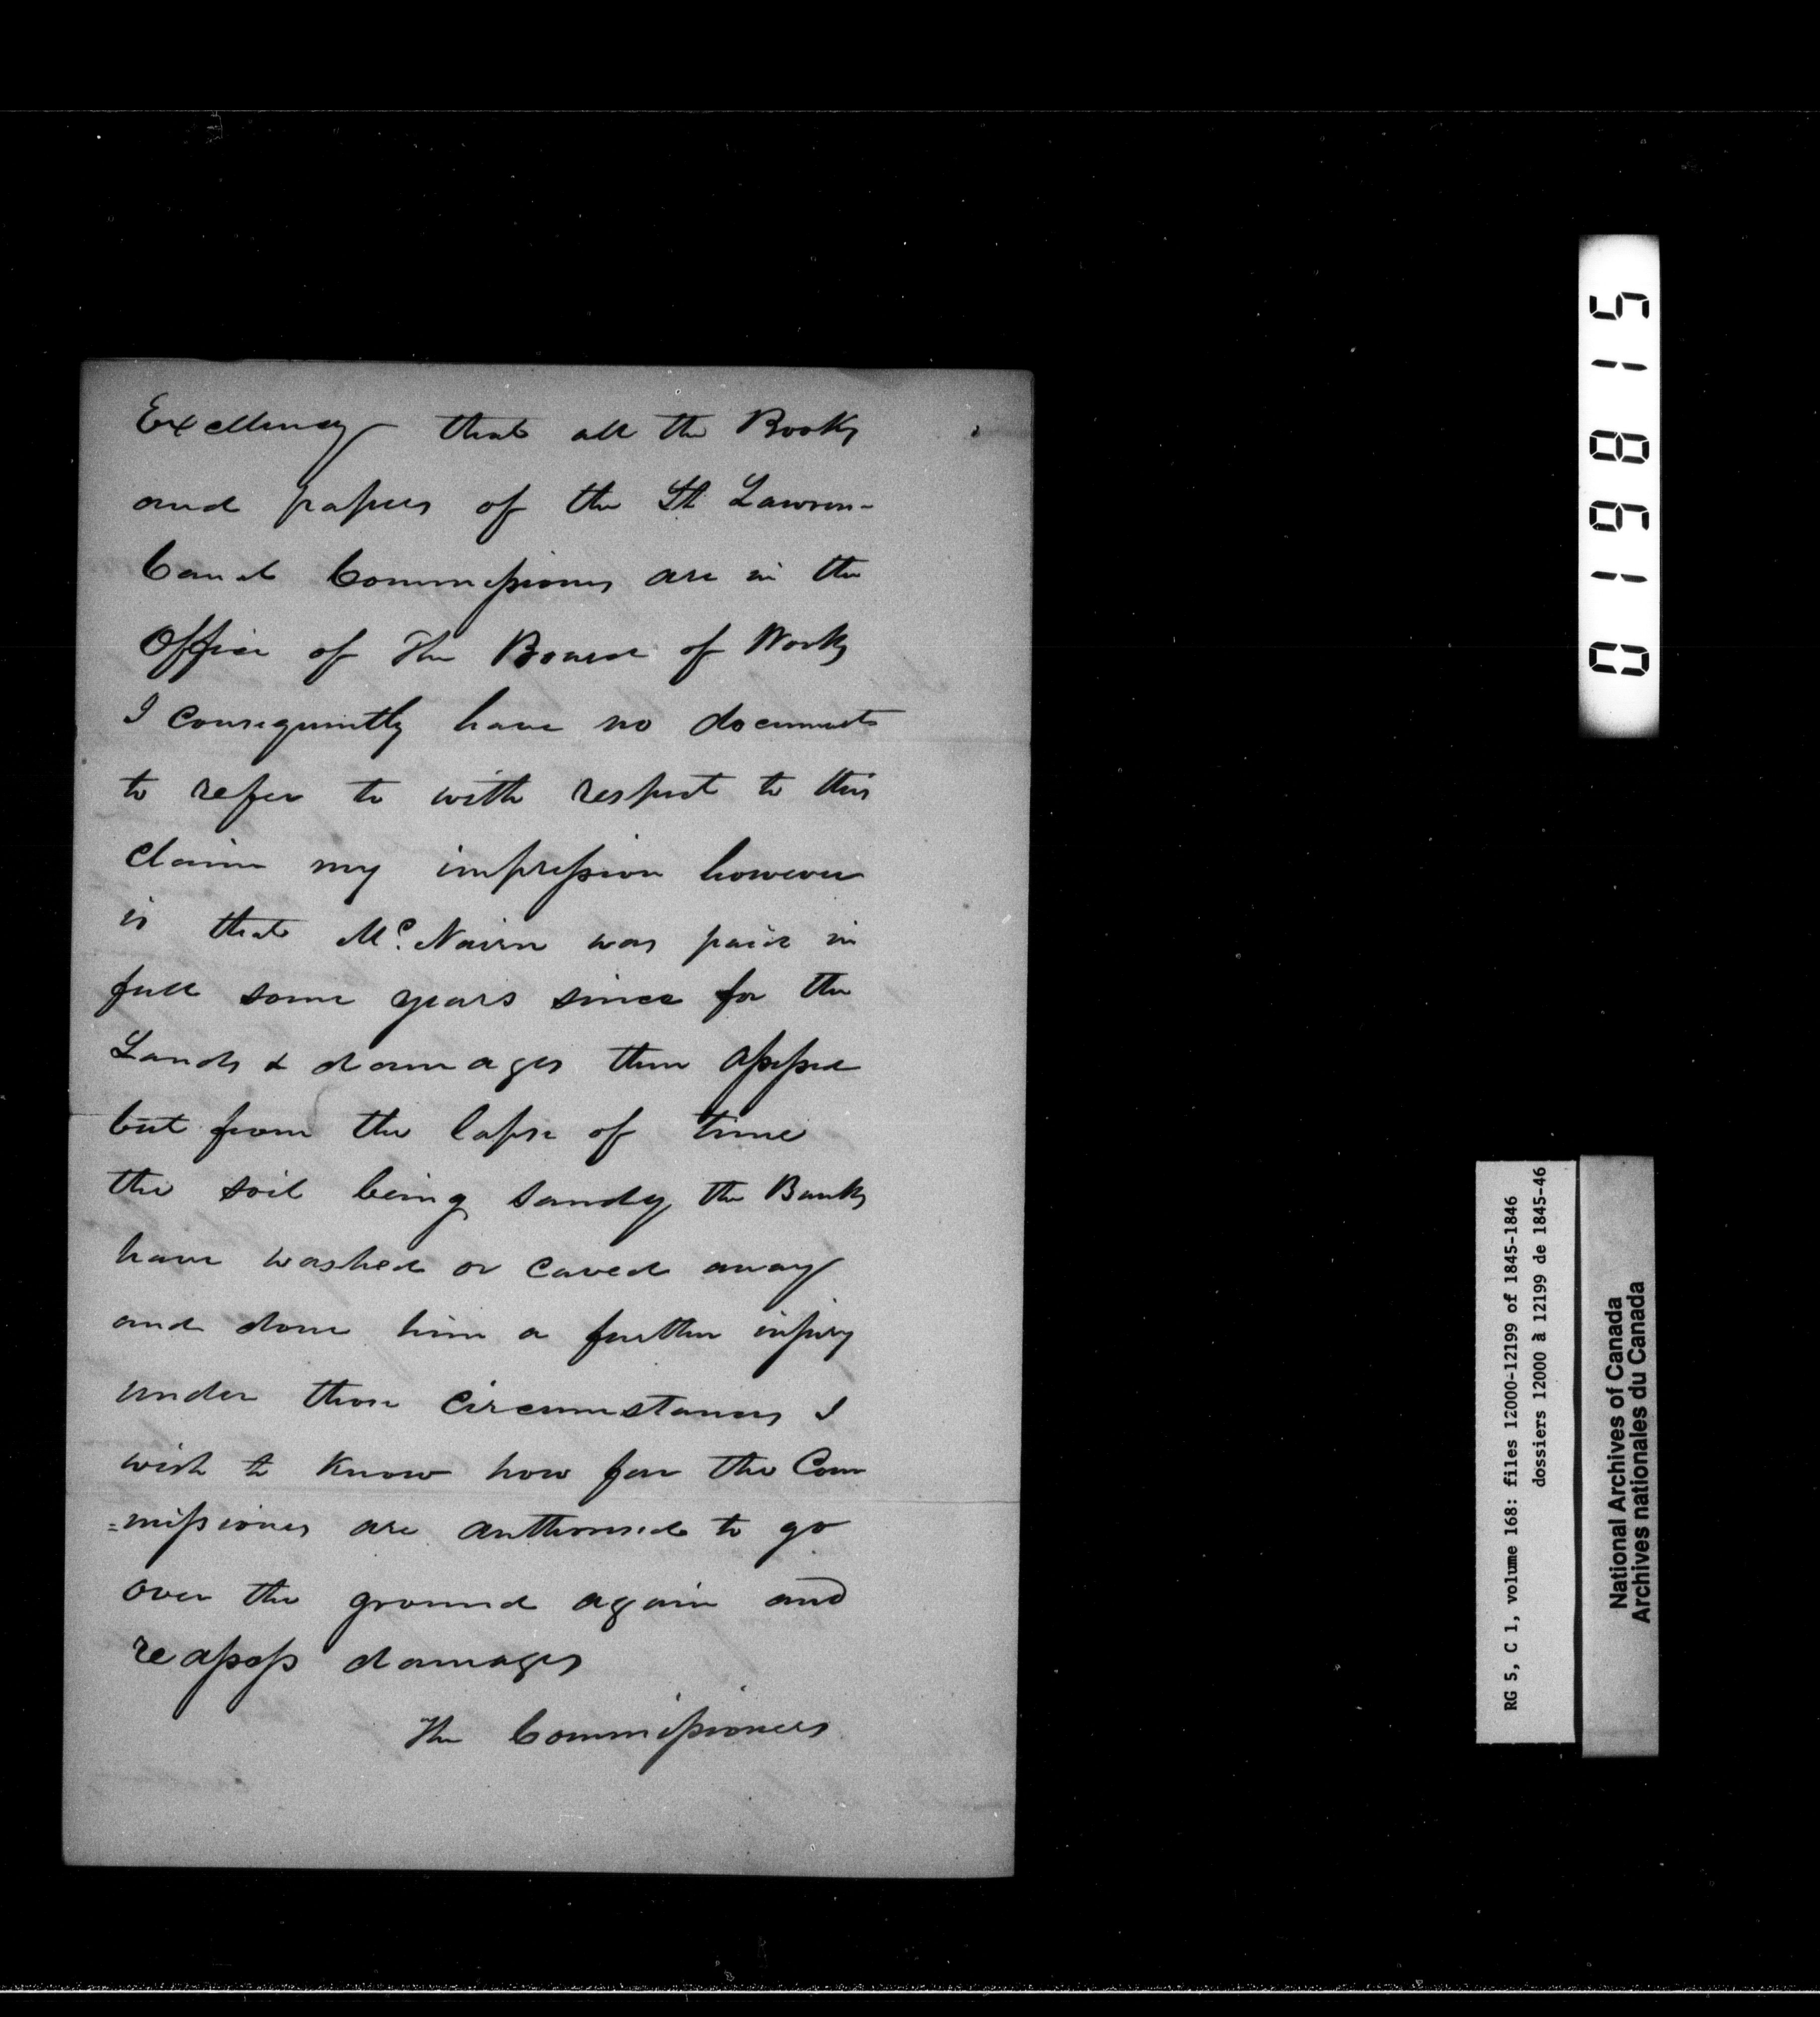 Excellency that all the Books
and papers of the St Lawren-
Canal Commissioners are in the
Office of the Board of Works
I consequently have no documents
to refer to with respect to this
claim my impression however
is that Mc. Nairn was paid in
full some years since for the
Lands & damages then assessed
but from the lapse of time
the soil being sandy the Banks
have washed or caved away
and done him a further injury
under those circumstances I
wish to know how far the Com
=missioners are authorised to go
over the ground again and
reassess damages
The Commissioners
019815
RG 5, C 1, volume 168: files 12000-12199 of 1845-1846
dossiers 12000 à 12199 de 1845-46
National Archives of Canada
Archives nationales du Canada